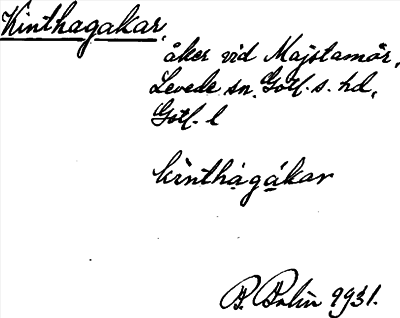 Kinthagakar,
åker vid Majstamör,
Levede sn. Gotl. s. hd,
Gotl. l
kinthagákar
B. Bolin 1931.